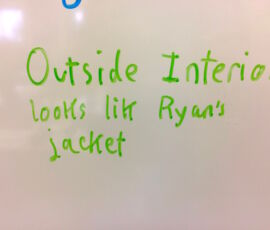 Outside Interio
looks lik Ryan's
jacket